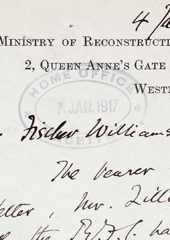 4 Ja
MINISTRY OF RECONSTRUCTI
2, QUEEN ANNE'S GATE
WESTM
HOME OFFICE
7 JAN. 1917
RECEIVED
Fischer Williams
The bearer
letter, Mr. Zilli
the